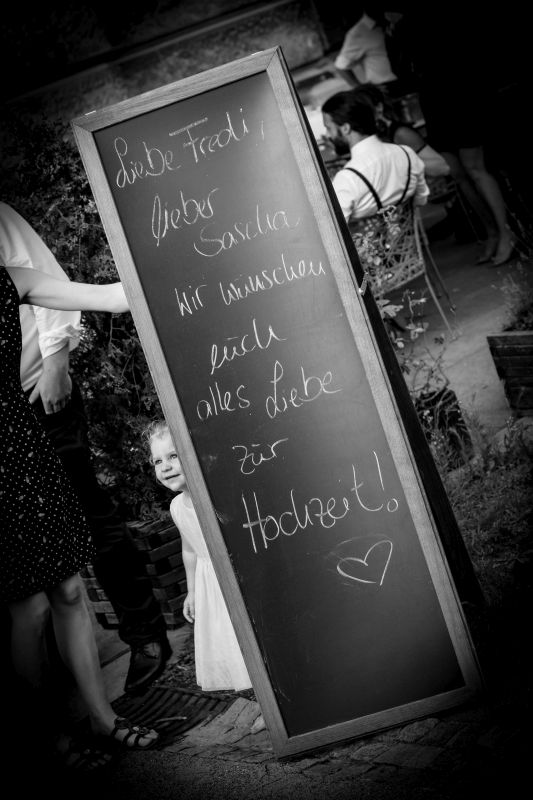 Liebe Fredi,
lieber
Sascha
wir wünschen
euch
alles Liebe
zur
Hochzeit!